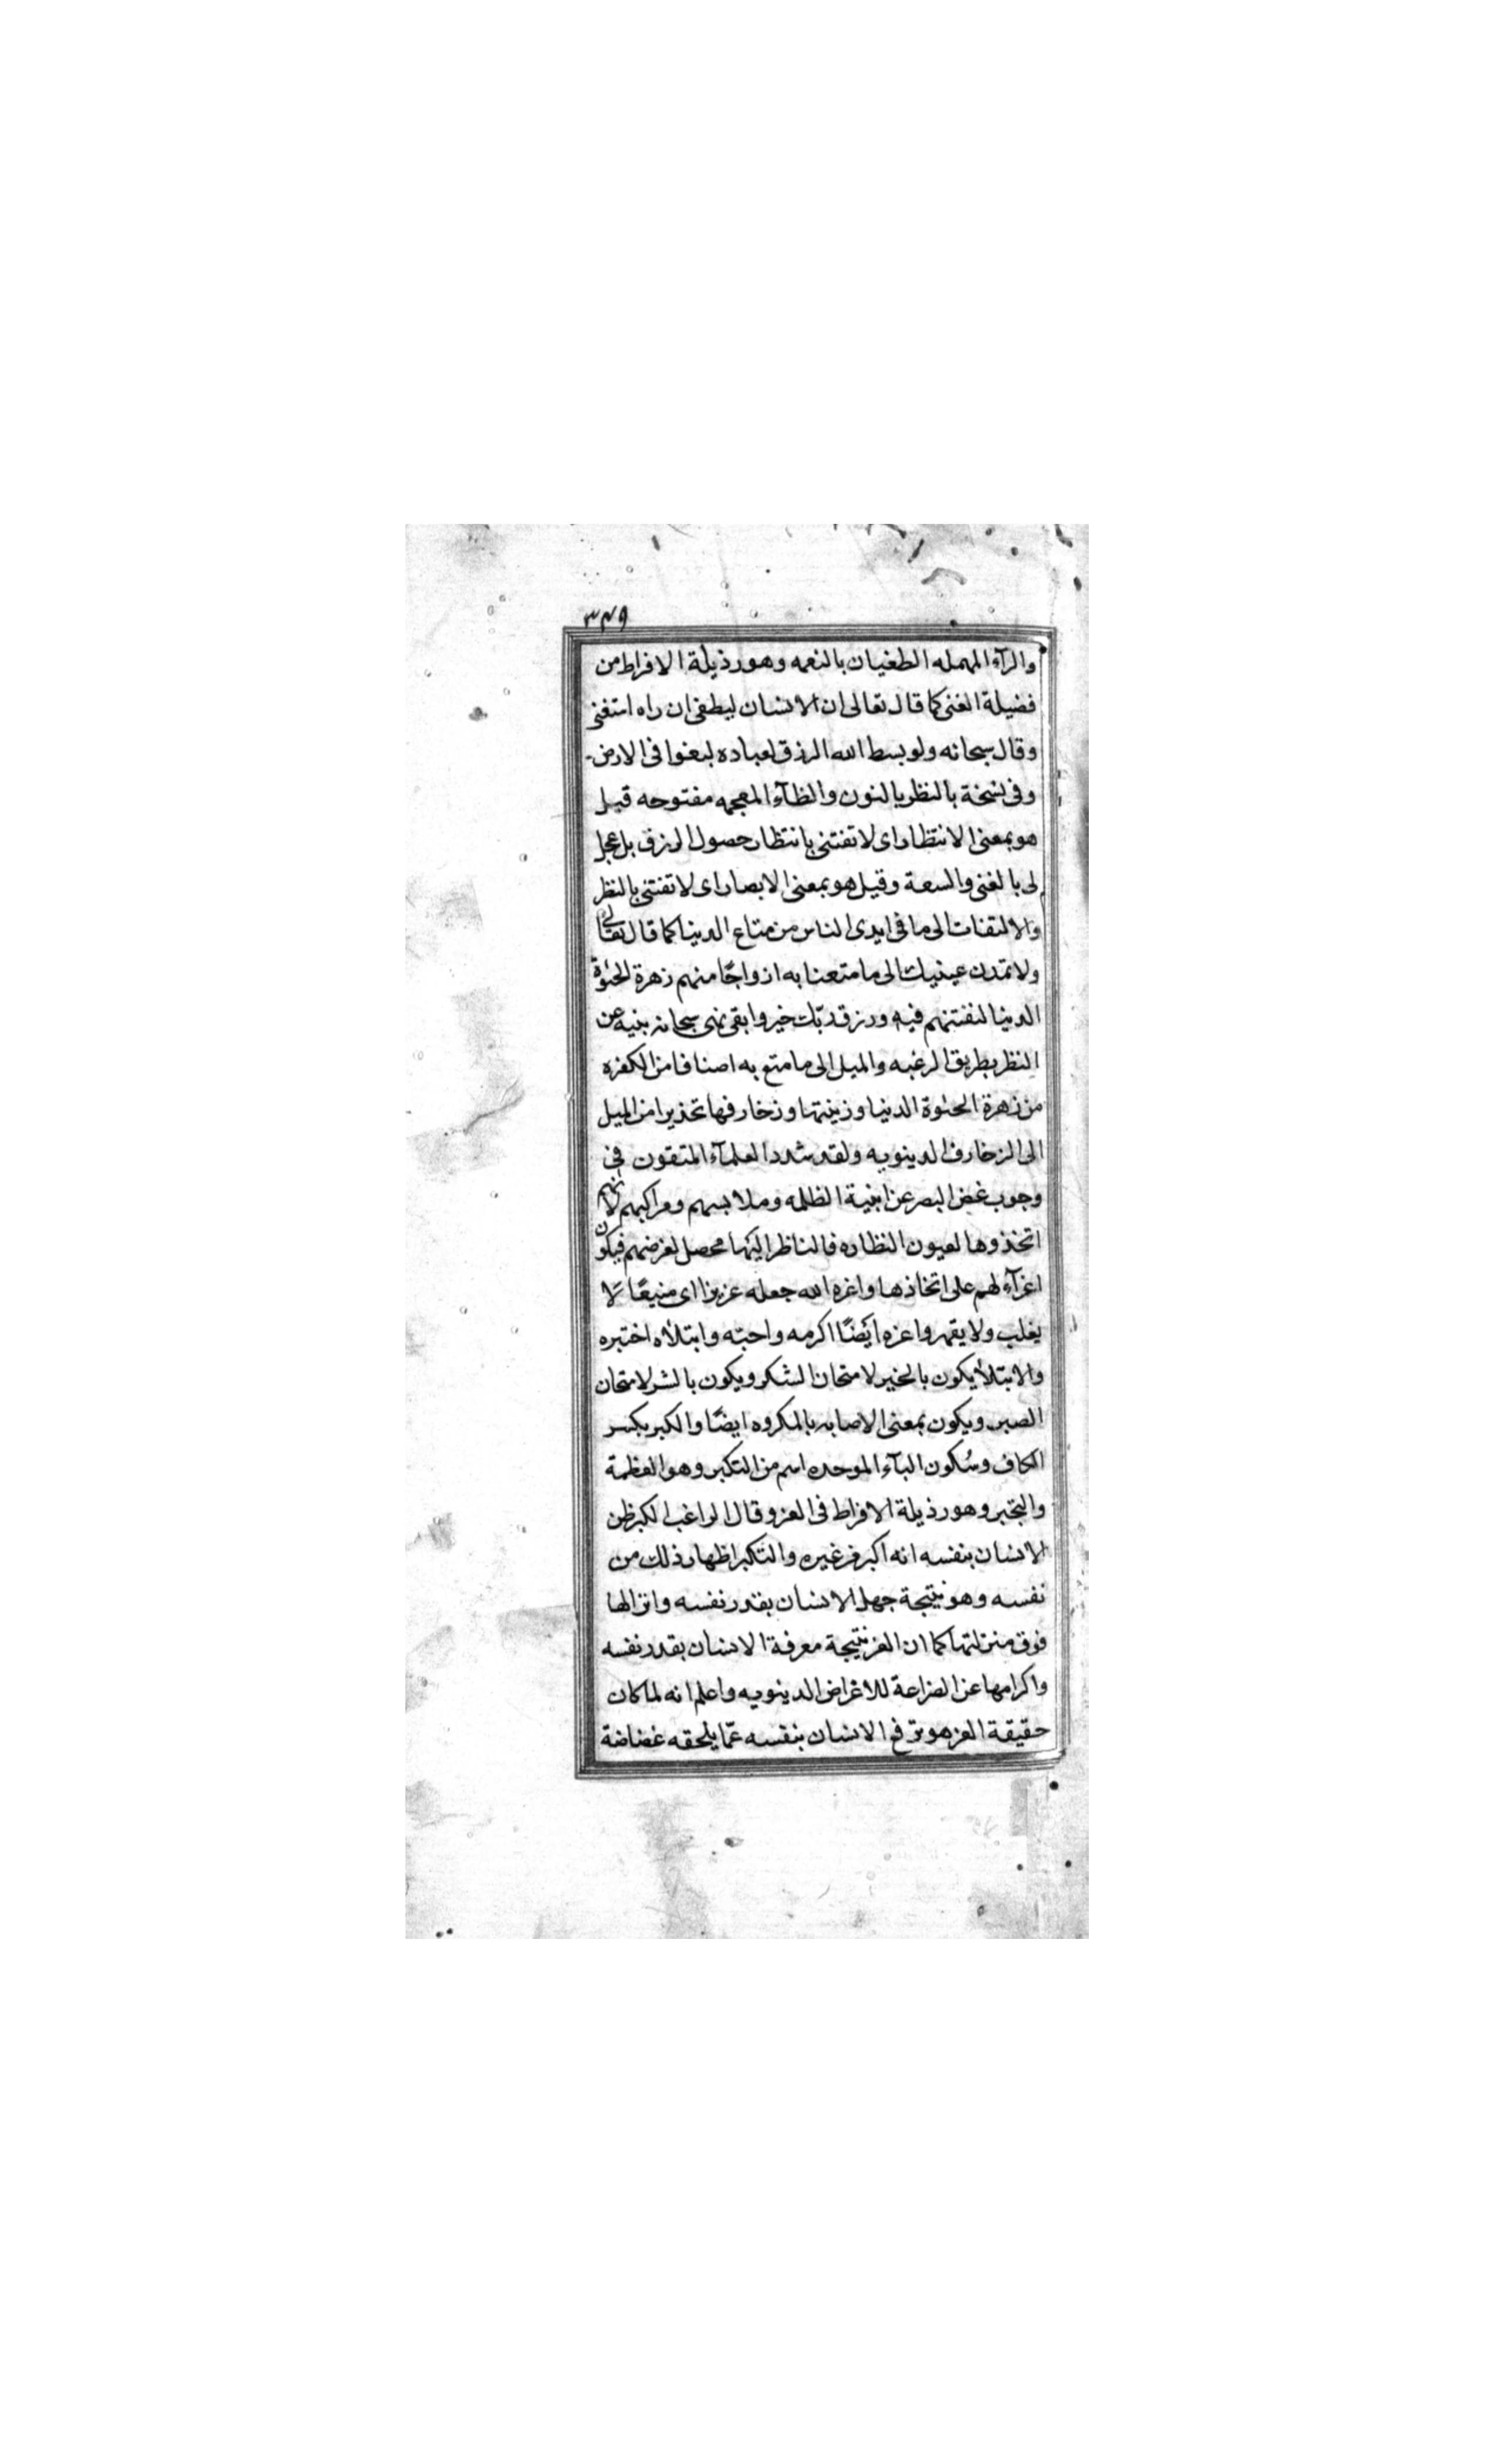 ٣٤٩
والرآء المهمله الطغيان بالنعمه وهو رذيلة الافراط من
فضيلة الغنى كما قال تعالى ان الانسان ليطغى ان راه استغنى
وقال سبحانه ولو بسط الله الرزق لعباده لبغوا فى الارض
وفى نسخة بالنظر بالنون والظآء المعجمه مفتوحه قيل
هو بمعنى الانتظار اى لا تفتنى بانتظار حصول الرزق بل عجل
لى بالغنى والسعة وقيل هو بمعنى الابصار اى لا تفتنى بالنظر
والالتفات الى ما فى ايدى الناس من متاع الدينا كما قال تعالى
ولا تمدن عينيك الى ما متعنا به ازواجًا منهم زهرة الحيوة
الدينا لنفتنهم فيه ورزق ربّك خير وابقى نهى سبحانه نبيه عن
النظر بطريق الرغبه والميل الى ما متع به اصنافا من الكفره
من زهرة الحيوة الدينا وزينتها وزخارفها تحذيرا من الميل
الى الزخارف الدينويه ولقد شدد العلمآء المتقون فى
وجوب غض البصر عن ابنية الظلمه وملابسهم ومراكبهم لانهم
اتخذوها لعيون النظاره فالناظر اليَها محصل لغرضهم فيكون
اغرآء لهم على اتخاذها واعزه الله جعله عزيزا اى منيعًا لا
يغلب ولا يقهر واعزه ايَضًا اكرمه واحبّه وابتلاه اختبره
والابتلأ يكون بالخير لامتحان الشكر ويكون بالشر لامتحان
الصبر ويكون بمعنى الاصابه بالمكروه ايضًا والكبر بكسر
الكاف وسُكون البآء الموحده اسم من التكبر وهو العظمة
والتجبر وهو رذيلة الافراط فى العز وقال الراغب الكبر ظن
الانسان بنفسه انه اكبر من غيره والتكبر اظهار ذلك من
نفسه وهو نتيجة جهل الانسان بقدر نفسه وانزالها
فوق منزلتها كما ان العز نتيجة معرفة الانسان بقدر نفسه
واكرامها عن الضراعة للاغراض الدينويه واعلم انه لما كان
حقيقة العز هو ترفع الانسان بنفسه عمّا يلحقه غضاضة